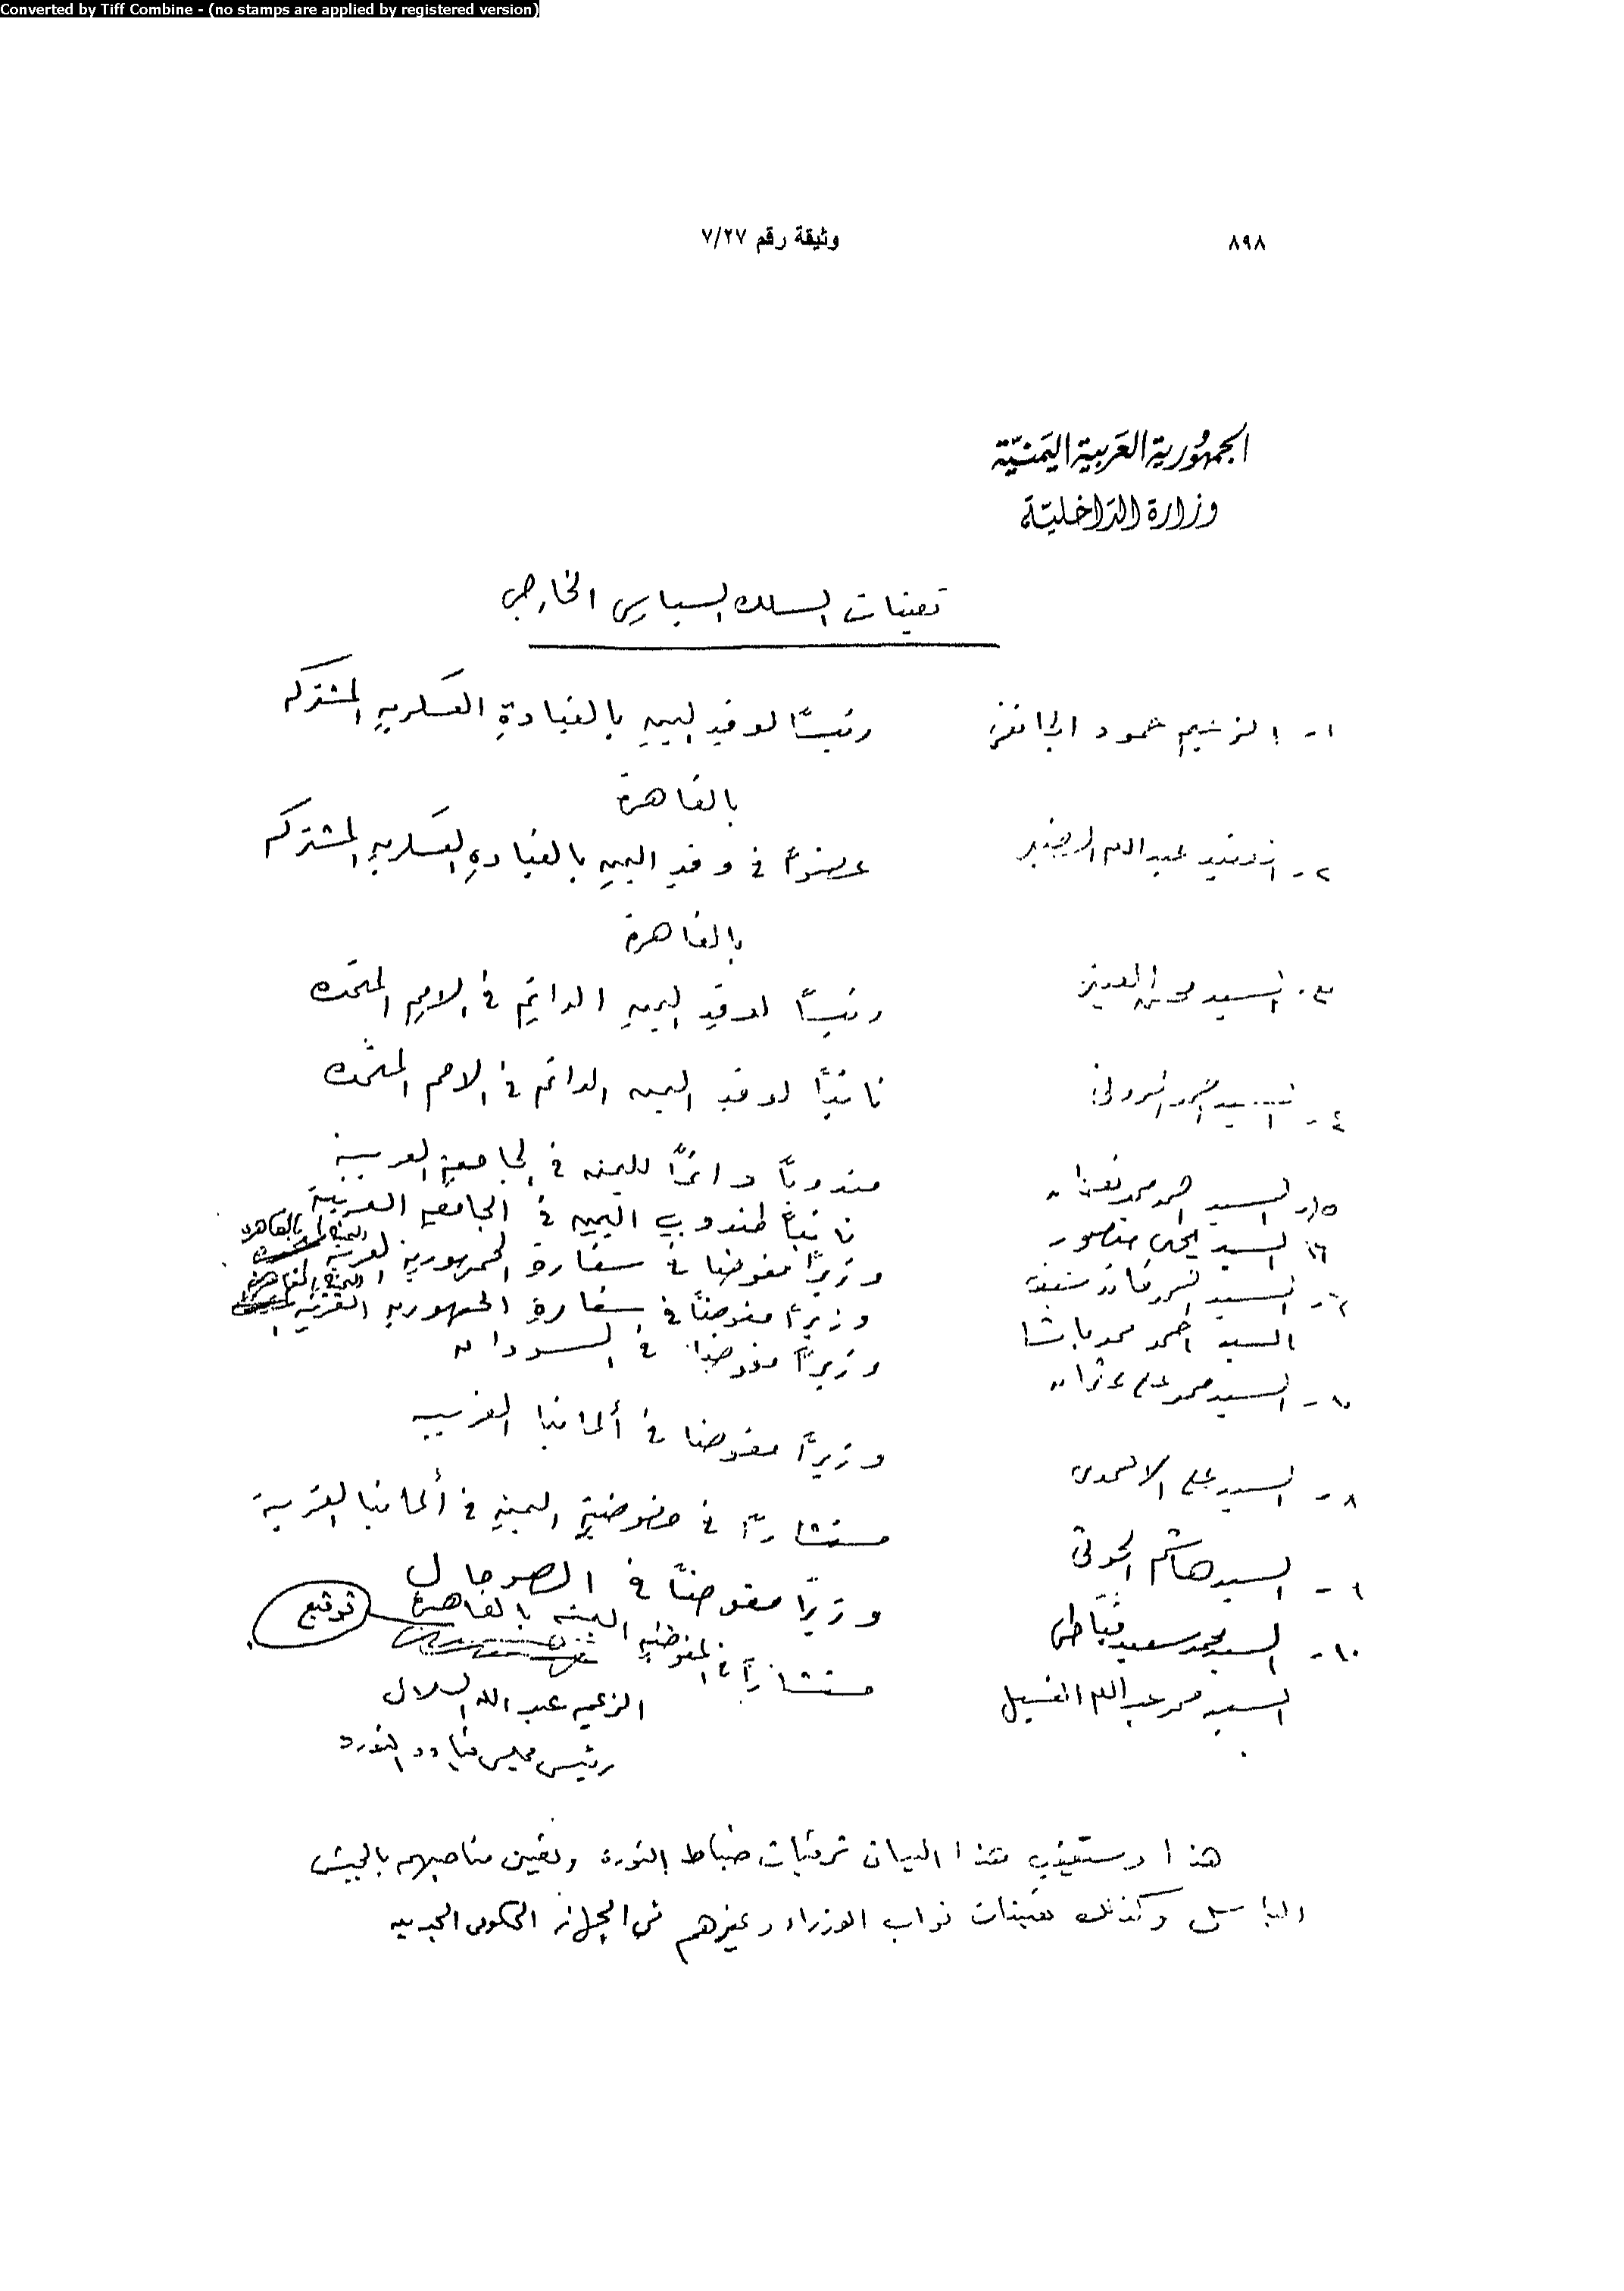 Converted by Tiff Combine - (no stamps are applied by registered version)
٨٩٨ وثيقة رقم ٧/٢٧
الجمهورية العربية اليمنية
وزارة الداخلية
تعينات السلك السياسي الخارجي
١- الزعيم حمود الجائفي رئيسًا لوفد اليمن بالقيادة العسكرية المشتركه
بالقاهرة
٢- عبدالله الضبي عضوًا في وفد اليمن بالقيادة العسكريه المشتركه
بالقاهرة
٣- السيد محسن العيني رئيسًا لوفد اليمن الدائم في الامم المتحده
٤- السيد نائبًا لوفد اليمن الدائم في الامم المتحده
٥- السيد احمد محمد نعمان مندوبًا دائمًا لليمن في الجامعة العربية
٦- السيد يحيى منصور نائبًا لمندوب اليمن في الجامعه العربية
السيد وزيرًا مفوضا في سفارة الجمهورية العربية اليمنية بالقاهرة
السيد احمد محمد باشا وزيرًا مفوضًا في سفارة الجمهوريه العربية اليمنية بالقاهرة
٧- السيد محمد علي عثمان وزيرًا مفوضًا في السودان
٨- السيد علي الاحمدي وزيرًا مفوضا في ألمانيا الغربيه
٩- السيد هاشم الحوثي مستشارًا في مفوضية اليمن في ألمانيا الغربية
١٠- السيد محمد سعيد قباطي وزيرًا مفوضًا في الصومال
السيد محمد عبدالله الفسيل مستشارًا في المفوضيه اليمنيه بالقاهرة توقيع
الزعيم عبد الله السلال
رئيس مجلس قيادة الثورة
هذا وستعقب هذا البيان ترقيات ضباط الثورة وتعين مناصبهم بالجيش
الباسل وكذلك تعينات نواب الوزراء وغيرهم في الجهاز الحكومي الجديد